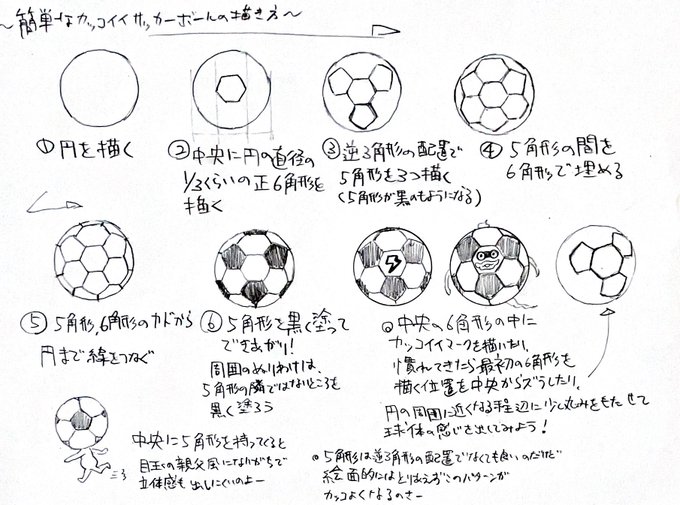 〜簡単なカッコイイサッカーボールの描き方〜
①円を描く
②中央に円の直径の
1/3くらいの正6角形を
描く
③逆3角形の配置で
5角形を3つ描く
(5角形が黒のもようになる)
④5角形の間を
6角形で埋める
⑤5角形,6角形のカドから
円まで線をつなぐ
⑥5角形を黒く塗って
できあがり!
周囲のぬりわけは、
5角形の隣ではないところを
黒く塗ろう
◎中央の6角形の中に
カッコイイマークを描いたり、
慣れてきたら最初の6角形を
描く位置を中央からズラしたり、
円の周囲に近くなる程辺に少し丸みをもたせて
球体の感じを出してみよう!
中央に5角形を持ってくると
目玉の親父風になりがちで
立体感も出しにくいのよー
◎5角形は逆3角形の配置でなくても良いのだけど
絵面的にはとりあえずこのパターンが
カッコよくなるのさー